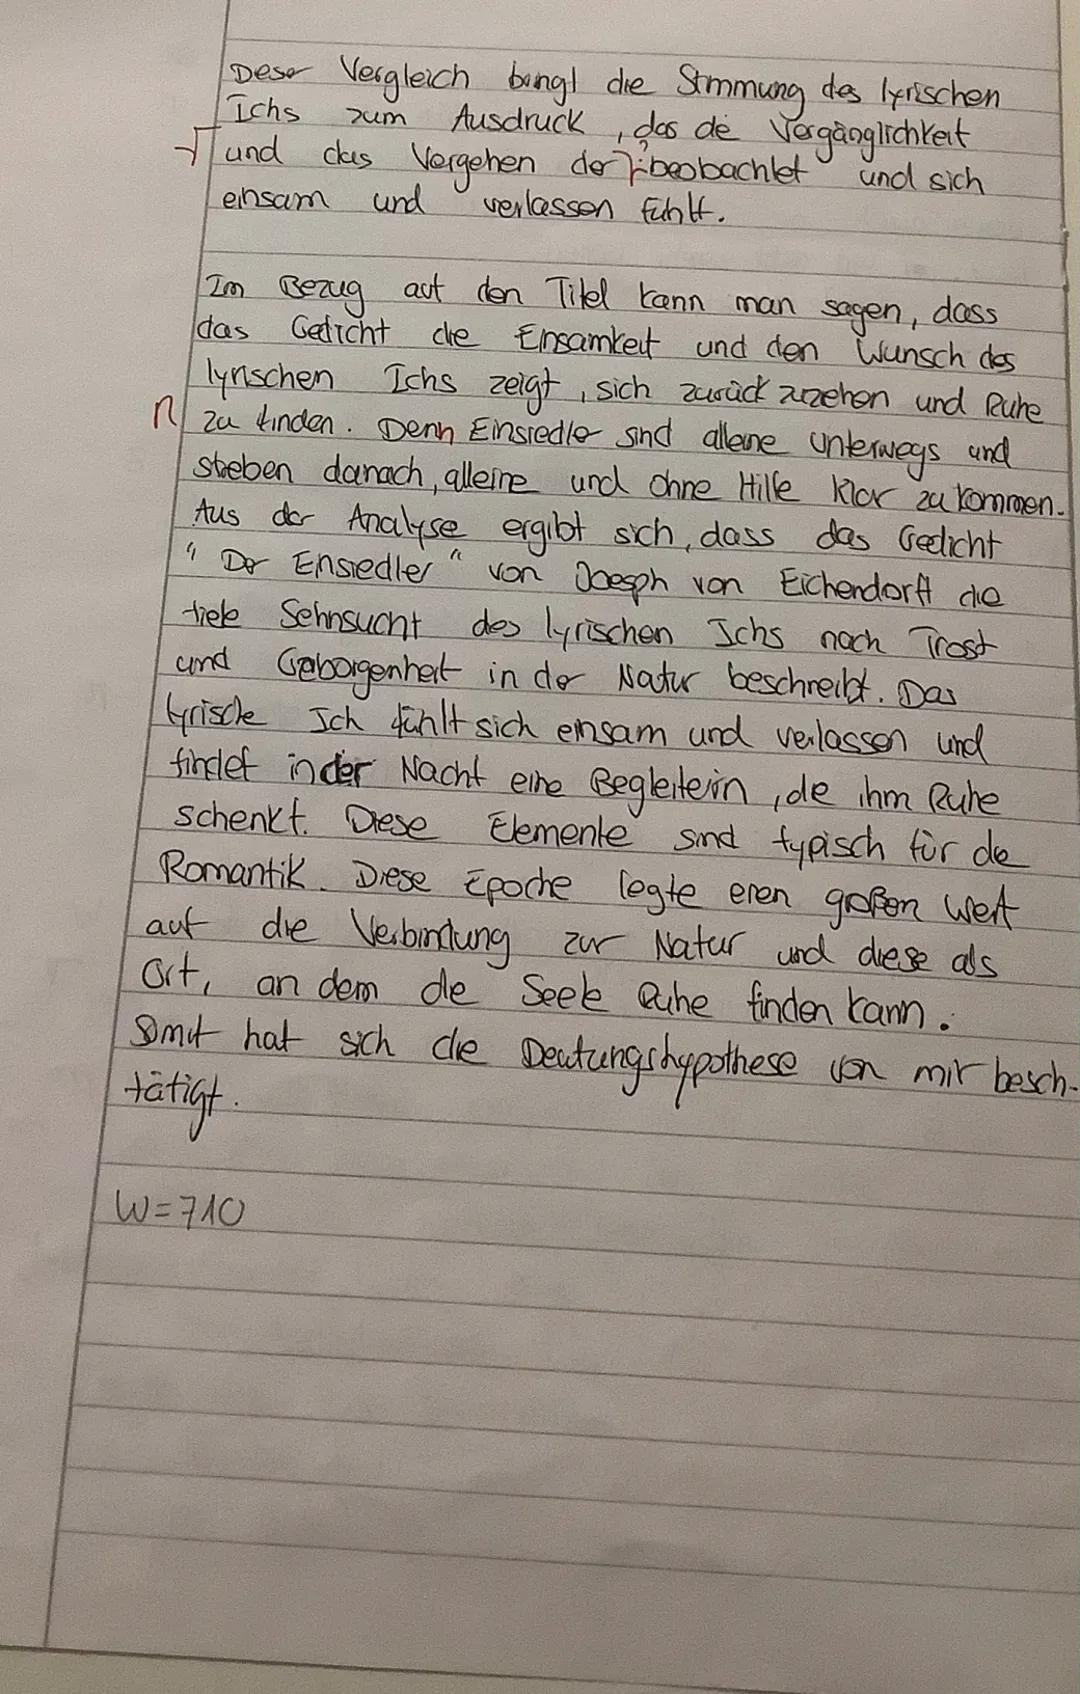 Dieser Vergleich bringt die Stimmung des lyrischen
Ichs zum Ausdruck, das die Vergänglichkeit
und das Vergehen der beobachtet und sich
einsam und verlassen fühlt.
Im Bezug auf den Titel kann man sagen, dass
das Gedicht die Einsamkeit und den Wunsch des
lyrischen Ichs zeigt, sich zurück zuziehen und Ruhe
n zu finden. Denn Einsiedler sind alleine unterwegs und
streben danach, alleine und ohne Hilfe klar zu kommen.
Aus der Analyse ergibt sich, dass das Gedicht
"Der Einsiedler" von Joesph von Eichendorff die
tiefe Sehnsucht des lyrischen Ichs nach Trost
und Geborgenheit in der Natur beschreibt. Das
lyrische Ich fühlt sich einsam und verlassen und
findet in der Nacht eine Begleiterin, die ihm Ruhe
schenkt. Diese Elemente sind typisch für die
Romantik. Diese Epoche legte einen großen Wert
auf die Verbindung zur Natur und diese als
Ort, an dem die Seele Ruhe finden kann.
Somit hat sich die Deutungshypothese von mir besch-
tätigt.
W=710